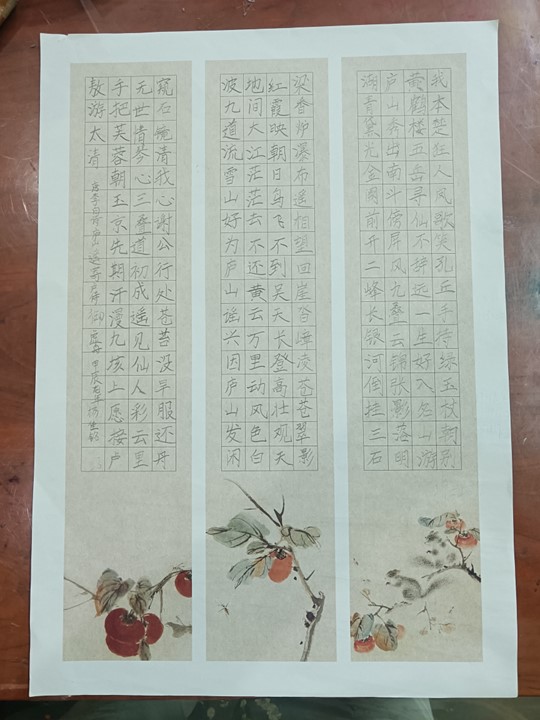 我本楚狂人风歌笑孔丘手持绿玉杖朝别
黄鹤楼五岳寻仙不辞远一生好入名山游
庐山秀出南斗傍屏风九叠云锦张影落明
湖青黛光金阙前开二峰长银河倒挂三石
梁香炉瀑布遥相望回崖沓嶂凌苍苍翠影
红霞映朝日鸟飞不到吴天长登高壮观天
地间大江茫茫去不还黄云万里动风色白
波九道流雪山好为庐山谣兴因庐山发闲
窥石镜清我心谢公行处苍苔没早服还丹
无世情琴心三叠道初成遥见仙人彩云里
手把芙蓉朝玉京先期汗漫九垓上愿接卢
敖游太清 唐李白诗庐山谣寄卢侍御虚舟 甲辰